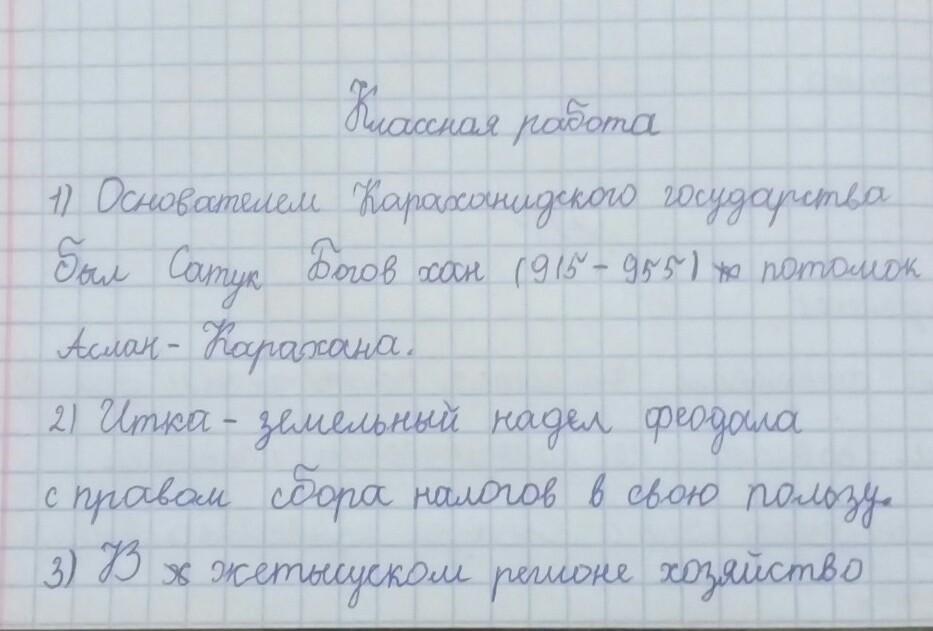 Классная работа
1) Основателем Караханидского государства
был Сатук Богов хан (915-955) потомок
Аслан - Карахана.
2) Итка - земельный надел феодала
с правом сбора налогов в свою пользу.
3) В ж жетысуском регионе хозяйство